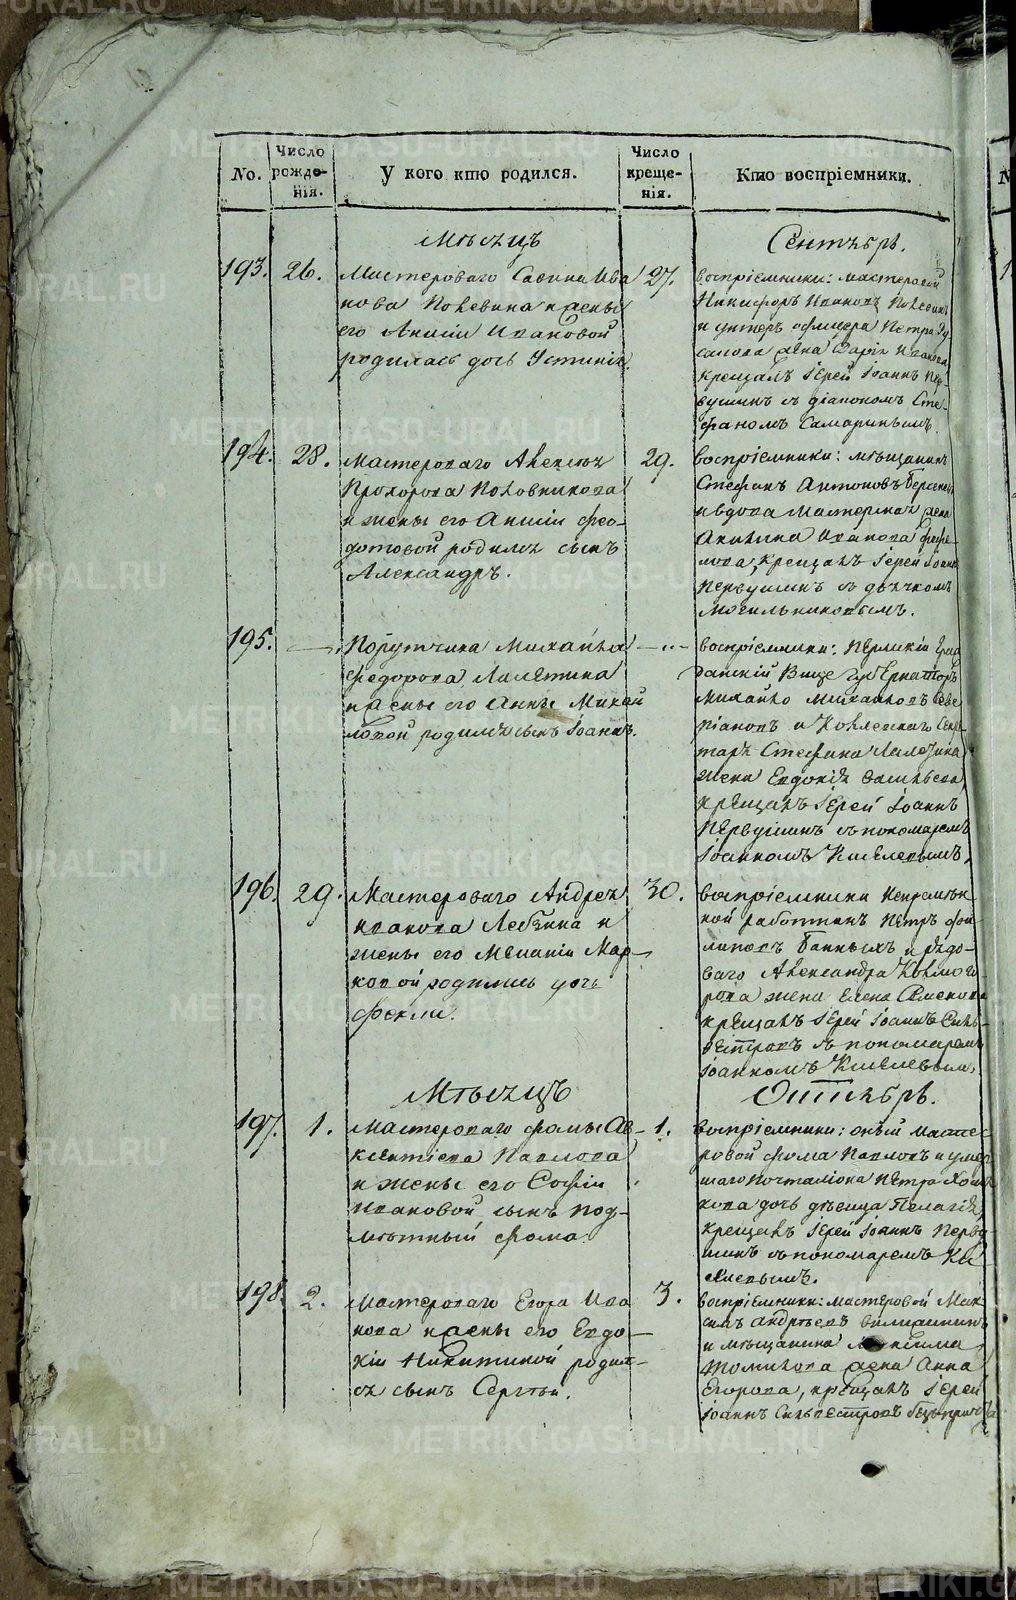 No.
Число рожде-нія.
У кого кто родился.
Число креще-нія.
Кто воспріемники.
Мѣсяцъ
Сентябрь.
193. 26.
Мастероваго Саввина Ива
нова Полевина и жены
его Анисіи Ивановой
родилась дочь Устинія.
27.
воспріемники: мастеровой
Никифоръ Ивановъ
и унтеръ офицера Петра
жена Дарія Иванова
крещалъ Іерей Іоаннъ Пер-
вушинъ съ діакономъ Сте-
фаномъ Самаринымъ.
194. 28.
Мастероваго Алексѣя
Прохорова Половникова
и жены его Анисіи Фео-
дотовой родился сынъ
Александръ.
29.
воспріемники: мѣщанинъ
Стефанъ Антоновъ
и вдова мастерская жена
Акилина Иванова
крещалъ Іерей Іоаннъ
Первушинъ съ дьячкомъ
Могильниковымъ.
195. —
Порутчика Михайла
Федорова Лалетина
и жены его Анны Михай
ловой родился сынъ Іоаннъ.
— „ —
воспріемники: Пермскій
Вице Губернаторъ
Михайло Михайловъ
и Коллежскаго Секре
таря Стефана Лалетина
жена Евдокія Васильева
крещалъ Іерей Іоаннъ
Первушинъ съ пономаремъ
Іоанномъ Киселевымъ.
196. 29.
Мастероваго Андрея
Иванова Лебкина и
жены его Меланіи Мар-
ковой родилась дочь
Фекла.
30.
воспріемники Непремѣн
ной работникъ Петръ Фи-
липовъ Банныхъ и рядо-
ваго Александра
жена Елена Семенова
крещалъ Іерей Іоаннъ Силь-
вестровъ съ пономаремъ
Іоанномъ Киселевымъ.
Мѣсяцъ
Октябрь.
197. 1.
Мастероваго Фомы Ав-
ксентіева Павлова
и жены его Софіи
Ивановой сынъ под-
мѣтный Фома.
1.
воспріемники: оный масте-
ровой Фома Павловъ и умер
шаго почталіона Петра
дочь дѣвица Пелагія
крещалъ Іерей Іоаннъ Перву
шинъ съ пономаремъ Ки
селевымъ.
198. 2.
Мастероваго Егора Ива
нова и жены его Евдо-
кіи Никитиной родил-
ся сынъ Сергѣй.
3.
воспріемники: мастеровой Мак-
симъ Андреевъ
и мѣщанина Максима
жена Анна
Егорова, крещалъ Іерей
Іоаннъ Сильвестровъ
METRIKI.GASO-URAL.RU